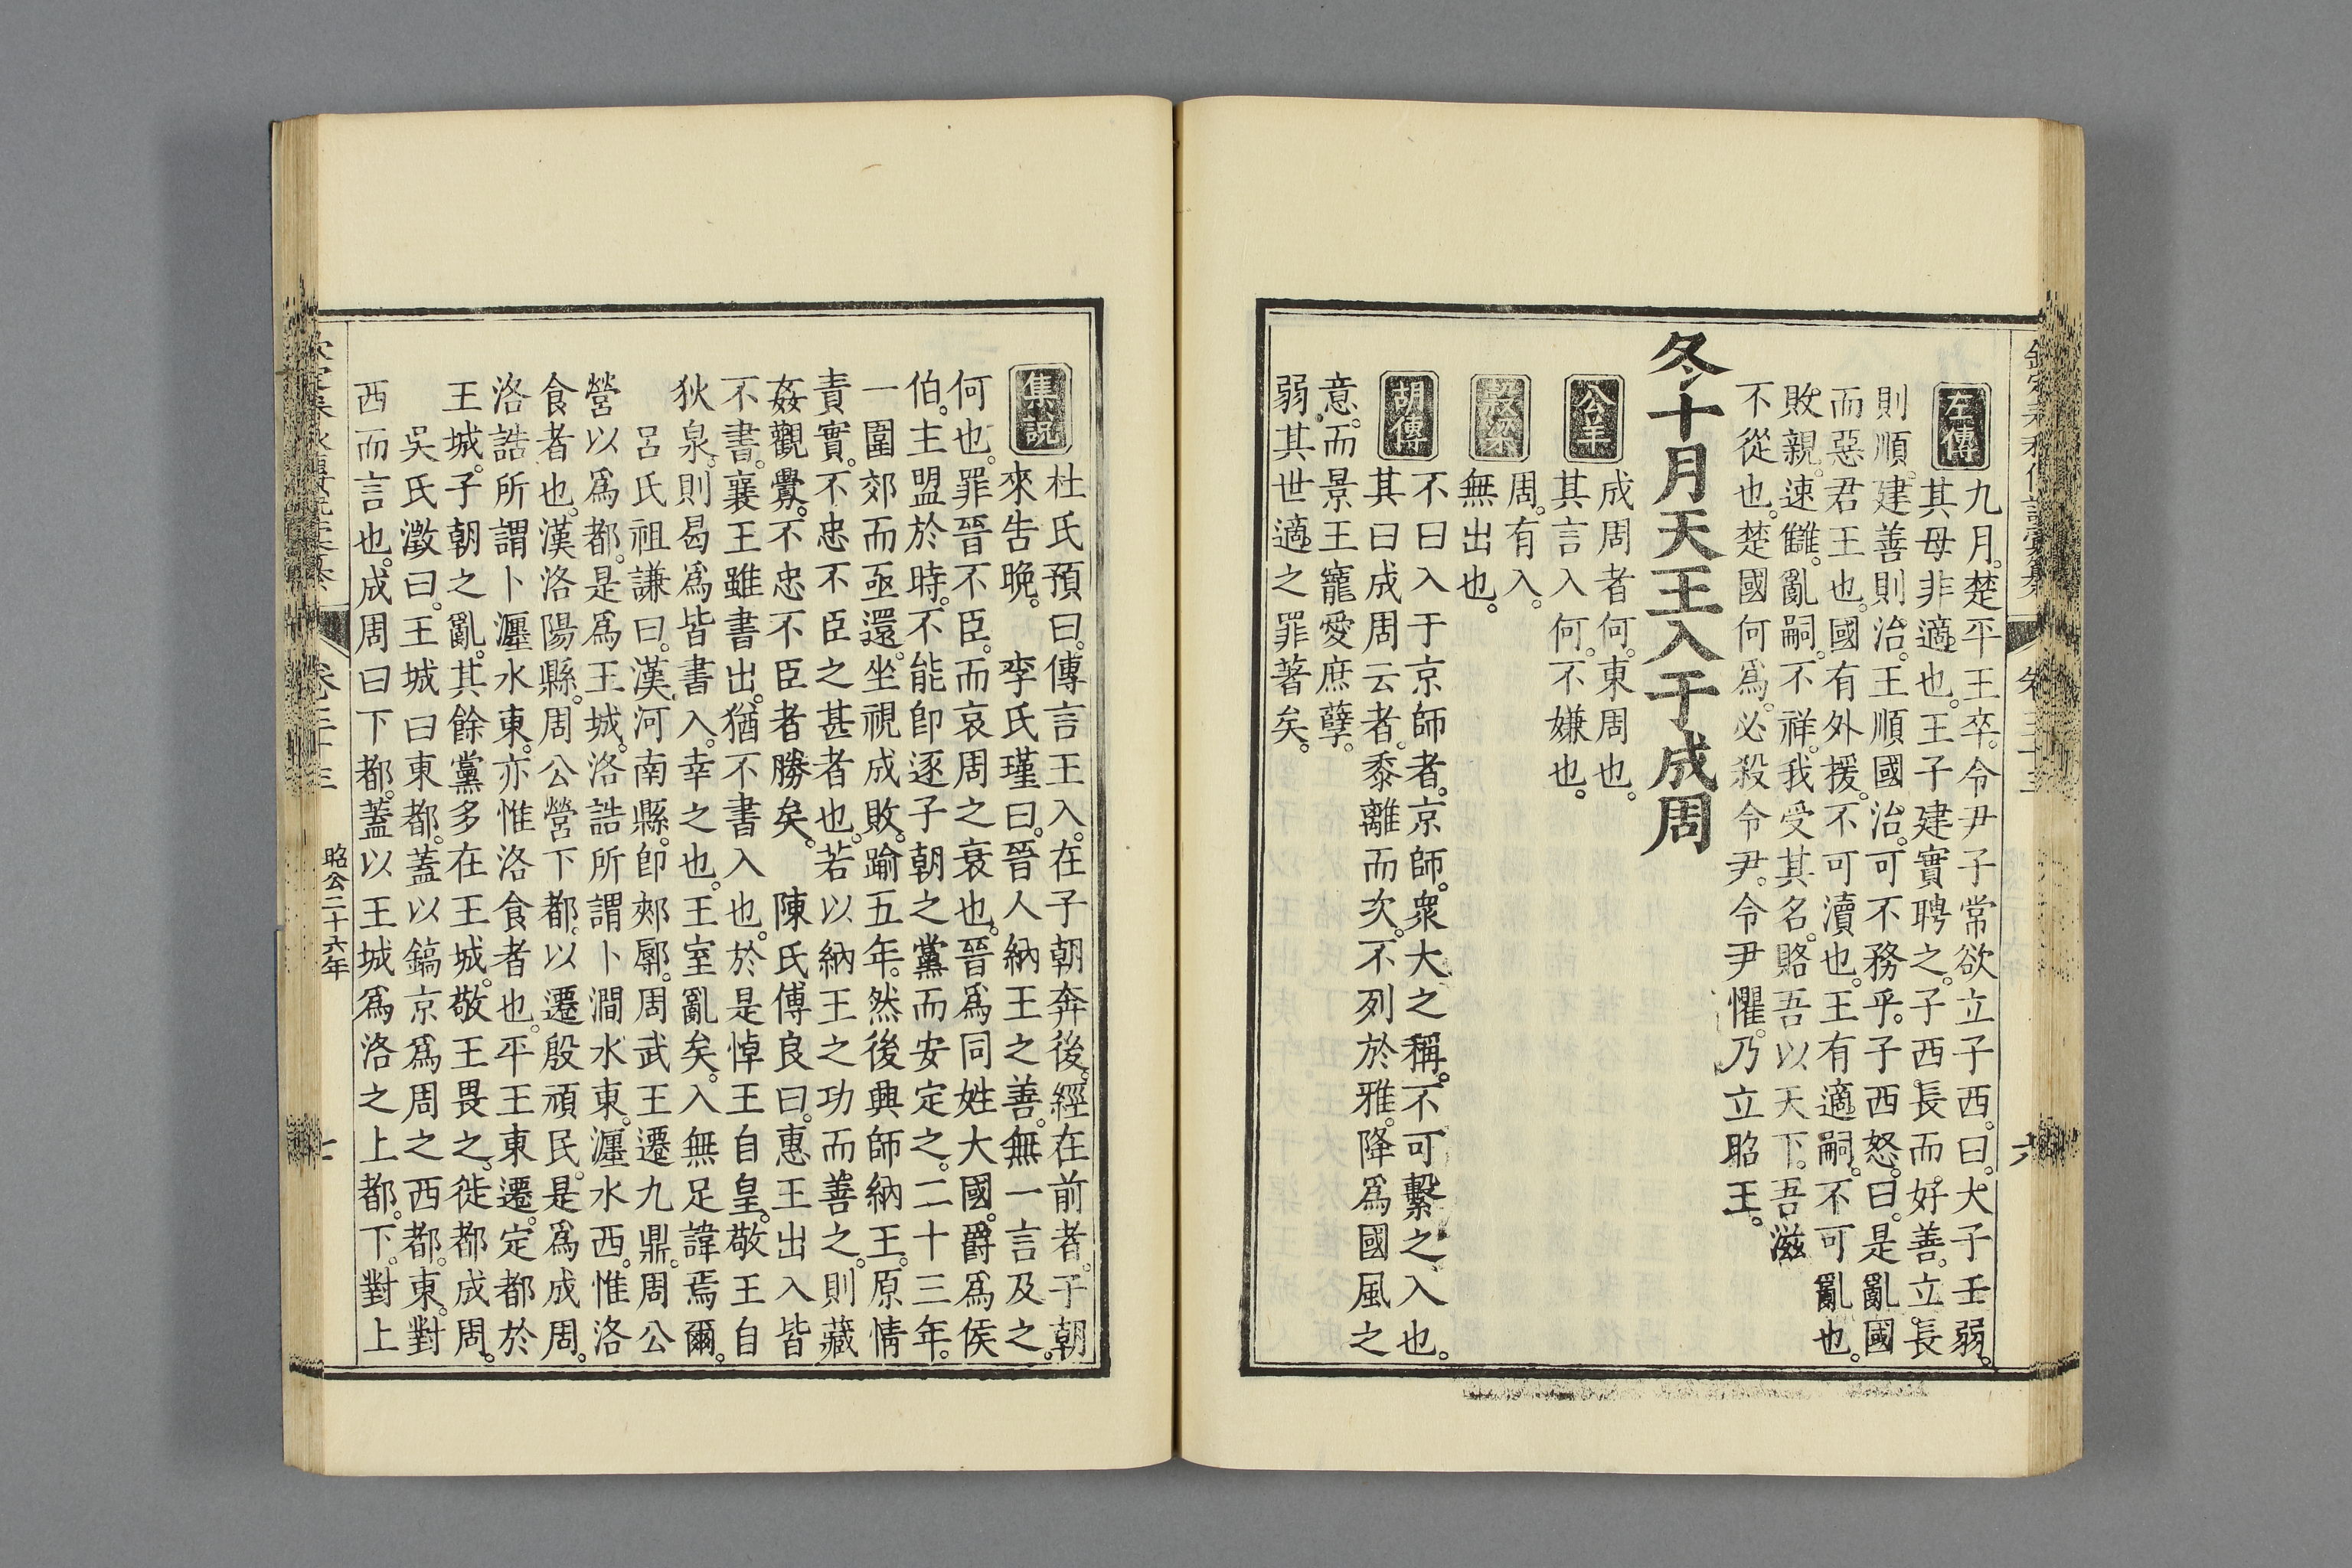 左傳
九月。楚平王卒。令尹子常欲立子西。曰。大子壬弱。
其母非適也。王子建實聘之。子西長而好善。立長
則順。建善則治。王順國治。可不務乎。子西怒。曰。是亂國
而惡君王也。國有外援。不可瀆也。王有適嗣。不可亂也。
敗親。速讎。亂嗣。不祥。我受其名。賂吾以天下。吾滋
不從也。楚國何爲。必殺令尹。令尹懼。乃立昭王。
冬十月天王入于成周
公羊
成周者何。東周也。
其言入何。不嫌也。
穀梁
周。有入。
無出也。
胡傳
不曰入于京師者。京師。衆大之稱。不可繫之入也。
其曰成周云者。黍離而次。不列於雅。降爲國風之
意。而景王寵愛庶孽。
弱其世適之罪著矣。
集說
杜氏預曰。傳言王入。在子朝奔後。經在前者。子朝
來告晚。 李氏瑾曰。晉人納王之善。無一言及之。
何也。罪晉不臣。而哀周之衰也。晉爲同姓大國。爵爲侯
伯。主盟於時。不能卽逐子朝之黨而安定之。二十三年。
一圍郊而亟還。坐視成敗。踰五年。然後興師納王。原情
責實。不忠不臣之甚者也。若以納王之功而善之。則藏
姦觀釁。不忠不臣者勝矣。 陳氏傅良曰。惠王出入皆
不書。襄王雖書出。猶不書入也。於是悼王自皇。敬王自
狄泉。則曷爲皆書入。幸之也。王室亂矣。入無足諱焉爾。
呂氏祖謙曰。漢河南縣。卽郟鄏。周武王遷九鼎。周公
營以爲都。是爲王城。洛誥所謂卜澗水東。瀍水西。惟洛
食者也。漢洛陽縣。周公營下都。以遷殷頑民。是爲成周。
洛誥所謂卜瀍水東。亦惟洛食者也。平王東遷。定都於
王城。子朝之亂。其餘黨多在王城。敬王畏之。徙都成周。
吳氏澂曰。王城曰東都。蓋以鎬京爲周之西都。東。對
西而言也。成周曰下都。蓋以王城爲洛之上都。下。對上
昭公二十六年